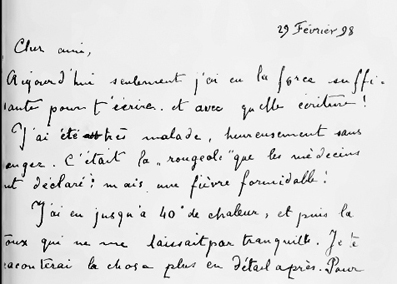 29 Février 98
Cher ami,
Aujourd'hui seulement j'ai eu la force suffi-
sante pour t'écrire. et avec quelle écriture!
J'ai été très malade, heureusement sans
anger. C'était la „rougeole" que les médecins
nt déclaré; mais une fièvre formidable!
J'ai eu jusqu'à 40° de chaleur, et puis la
toux qui ne me laissait par tranquille. Je te
raconterai la chose plus en détail après. Pour